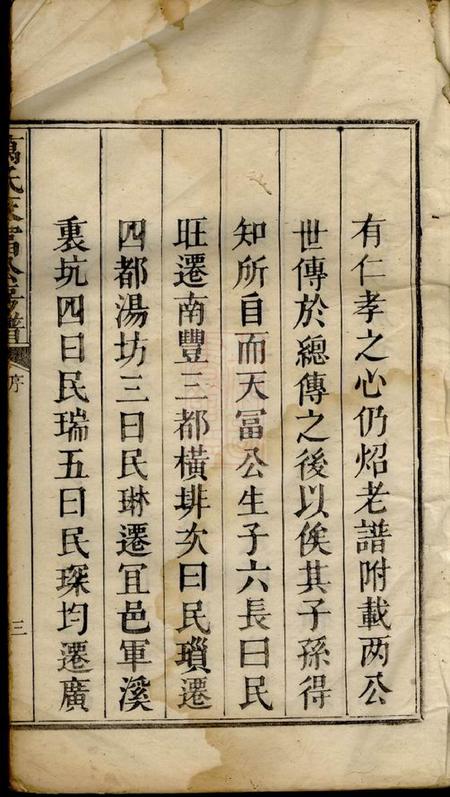 有仁孝之心仍炤老譜附載两公
世傳於總傳之後以俟其子孫得
知所自而天冨公生子六長曰民
旺遷南豐三都橫排次曰民瑣遷
四都湯坊三曰民琳遷冝邑軍溪
裏坑四曰民瑞五曰民琛均遷廣
萬氏天富公房譜
序
三